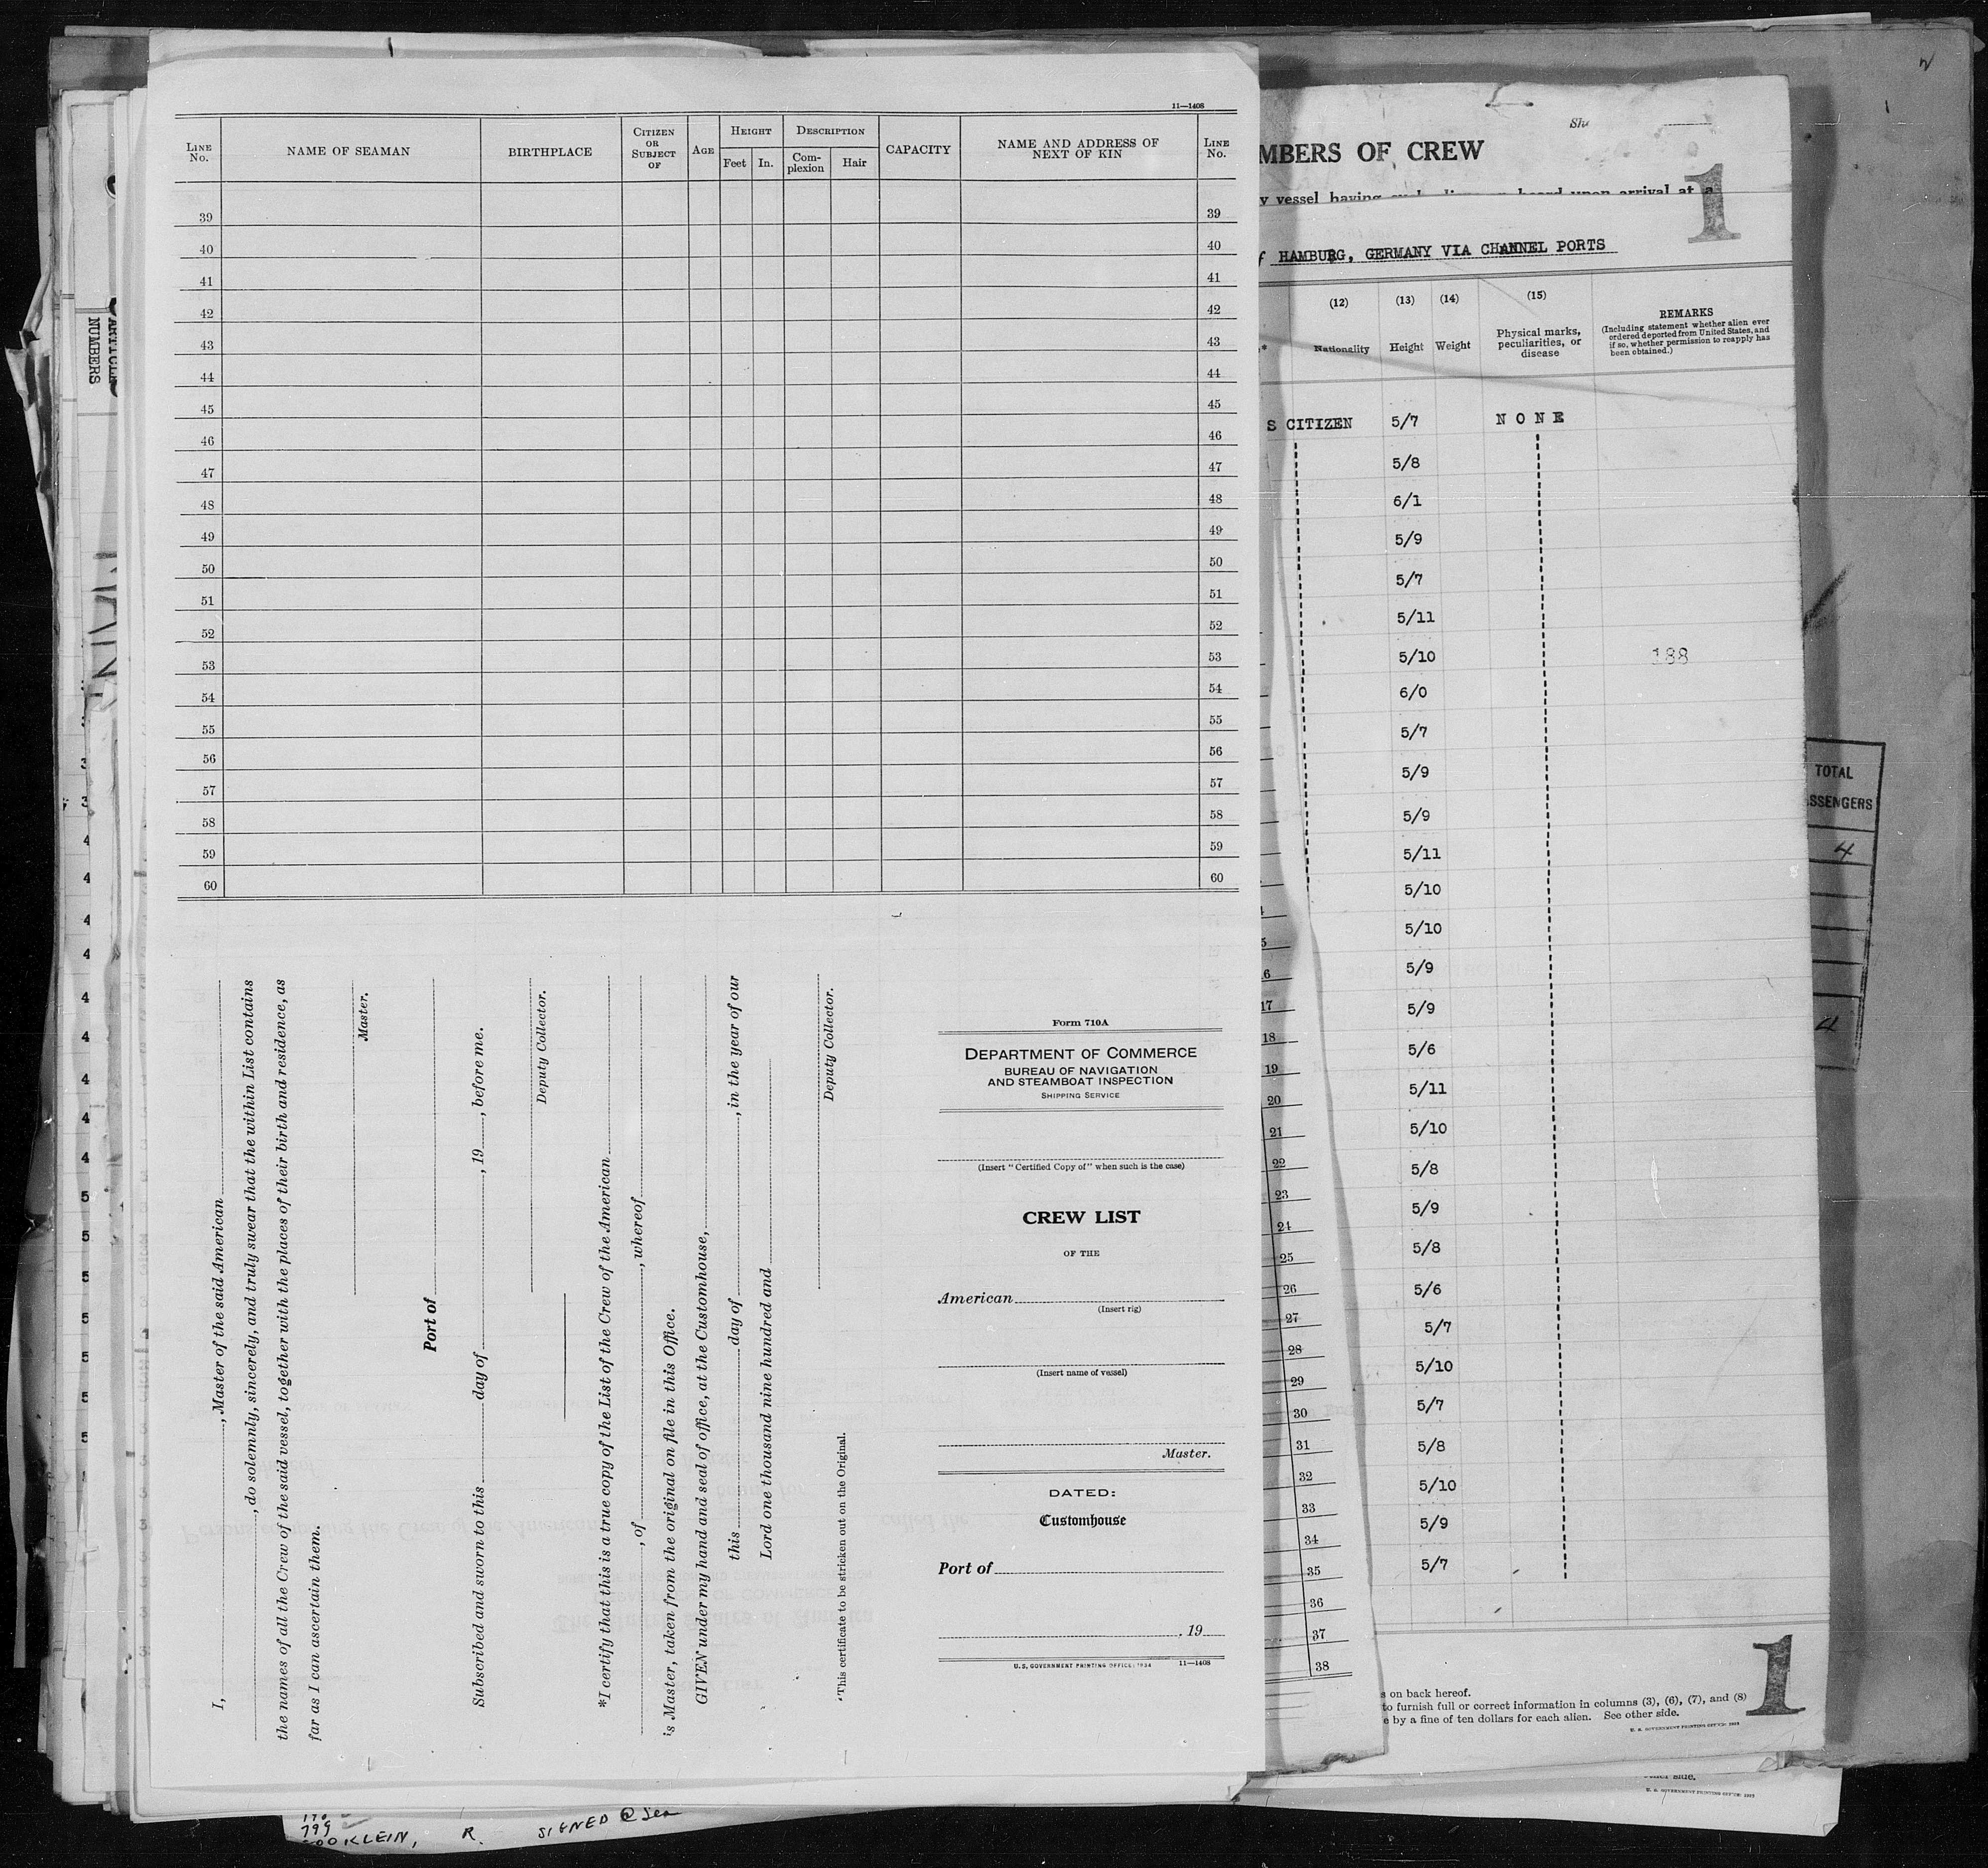 11—1408
LINE No.
NAME OF SEAMAN
BIRTHPLACE
CITIZEN OR SUBJECT OF
AGE
HEIGHT
Feet In.
DESCRIPTION
Com-plexion Hair
CAPACITY
NAME AND ADDRESS OF NEXT OF KIN
LINE No.
39 39
40 40
41 41
42 42
43 43
44 44
45 45
46 46
47 47
48 48
49 49
50 50
51 51
52 52
53 53
54 54
55 55
56 56
57 57
58 58
59 59
60 60
I, , Master of the said American
, do solemnly, sincerely, and truly swear that the within List contains
the names of all the Crew of the said vessel, together with the places of their birth and residence, as
far as I can ascertain them.
Master.
Port of
Subscribed and sworn to this day of , 19 , before me.
Deputy Collector.
*I certify that this is a true copy of the List of the Crew of the American
, of , whereof
is Master, taken from the original on file in this Office.
GIVEN under my hand and seal of office, at the Customhouse,
this day of , in the year of our
Lord one thousand nine hundred and
Deputy Collector.
*This certificate to be stricken out on the Original.
Form 710A
DEPARTMENT OF COMMERCE
BUREAU OF NAVIGATION
AND STEAMBOAT INSPECTION
SHIPPING SERVICE
(Insert "Certified Copy of" when such is the case)
CREW LIST
OF THE
American
(Insert rig)
(Insert name of vessel)
Master.
DATED:
Customhouse
Port of
, 19
U.S. GOVERNMENT PRINTING OFFICE: 1934 11—1408
MBERS OF CREW
1
HAMBURG, GERMANY VIA CHANNEL PORTS
(12) (13) (14) (15)
Nationality
Height
Weight
Physical marks,
peculiarities, or
disease
REMARKS
(Including statement whether alien ever
ordered deported from United States, and
if so, whether permission to reapply has
been obtained.)
S CITIZEN 5/7 NONE
5/8
6/1
5/9
5/7
5/11
5/10 188
6/0
5/7
5/9
5/9
5/11
5/10
5/10
5/9
5/9
5/6
5/11
5/10
5/8
5/9
5/8
5/6
5/7
5/10
5/7
5/8
5/10
5/9
5/7
17
18
19
20
21
22
23
24
25
26
27
28
29
30
31
32
33
34
35
36
37
38
s on back hereof.
to furnish full or correct information in columns (3), (6), (7), and (8)
e by a fine of ten dollars for each alien. See other side.
1
TOTAL
SSENGERS
4
4
NUMBERS
799
KLEIN, R. SIGNED @ Sea